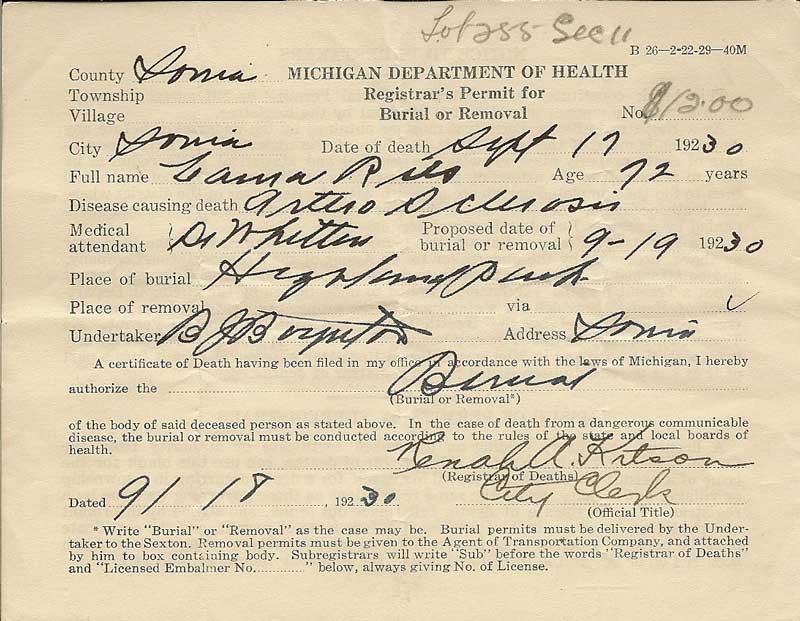 Lot 255 Sec 11
B 26—2-22-29—40M
County Ionia MICHIGAN DEPARTMENT OF HEALTH
Township Registrar's Permit for
Village Burial or Removal No. $12.00
City Ionia Date of death Sept 17 19230
Full name Ries Age 72 years
Disease causing death Arterio Sclerosis
Medical attendant Dr Whitten Proposed date of burial or removal 9-19 19230
Place of burial Highland Park
Place of removal via ✓
Undertaker B J Boynton Address Ionia
A certificate of Death having been filed in my office in accordance with the laws of Michigan, I hereby
authorize the Burial
(Burial or Removal*)
of the body of said deceased person as stated above. In the case of death from a dangerous communicable
disease, the burial or removal must be conducted according to the rules of the state and local boards of
health.
A. Kitson
(Registrar of Deaths)
City Clerk
Dated 9/ 18, 19230
(Official Title)
* Write "Burial" or "Removal" as the case may be. Burial permits must be delivered by the Under-
taker to the Sexton. Removal permits must be given to the Agent of Transportation Company, and attached
by him to box containing body. Subregistrars will write "Sub" before the words "Registrar of Deaths"
and "Licensed Embalmer No............" below, always giving No. of License.